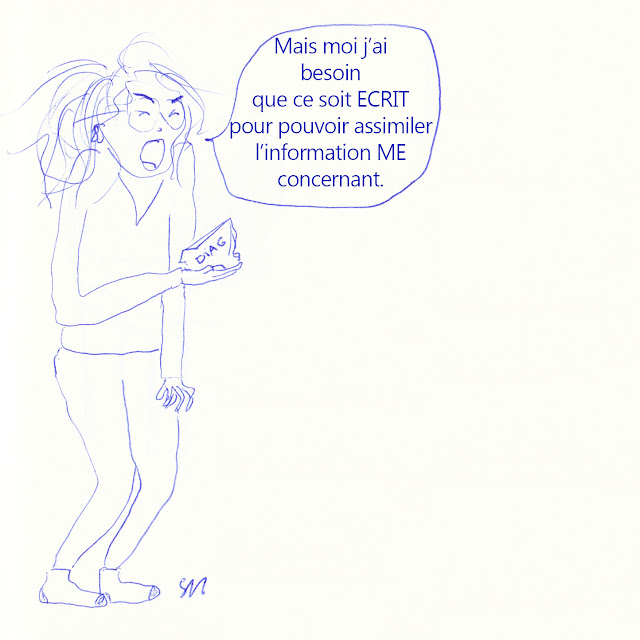 Mais moi j'ai
besoin
que ce soit ECRIT
pour pouvoir assimiler
l'information ME
concernant.
DIAG
SM